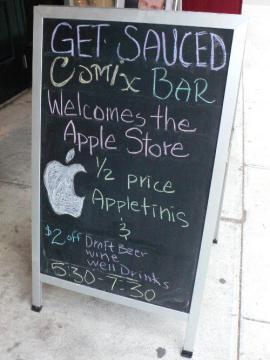 GET SAUCED
Comix BAR
Welcomes the
Apple Store
1/2 price
Appletinis
&
$2 off Draft Beer
wine
well Drinks
5:30-7:30